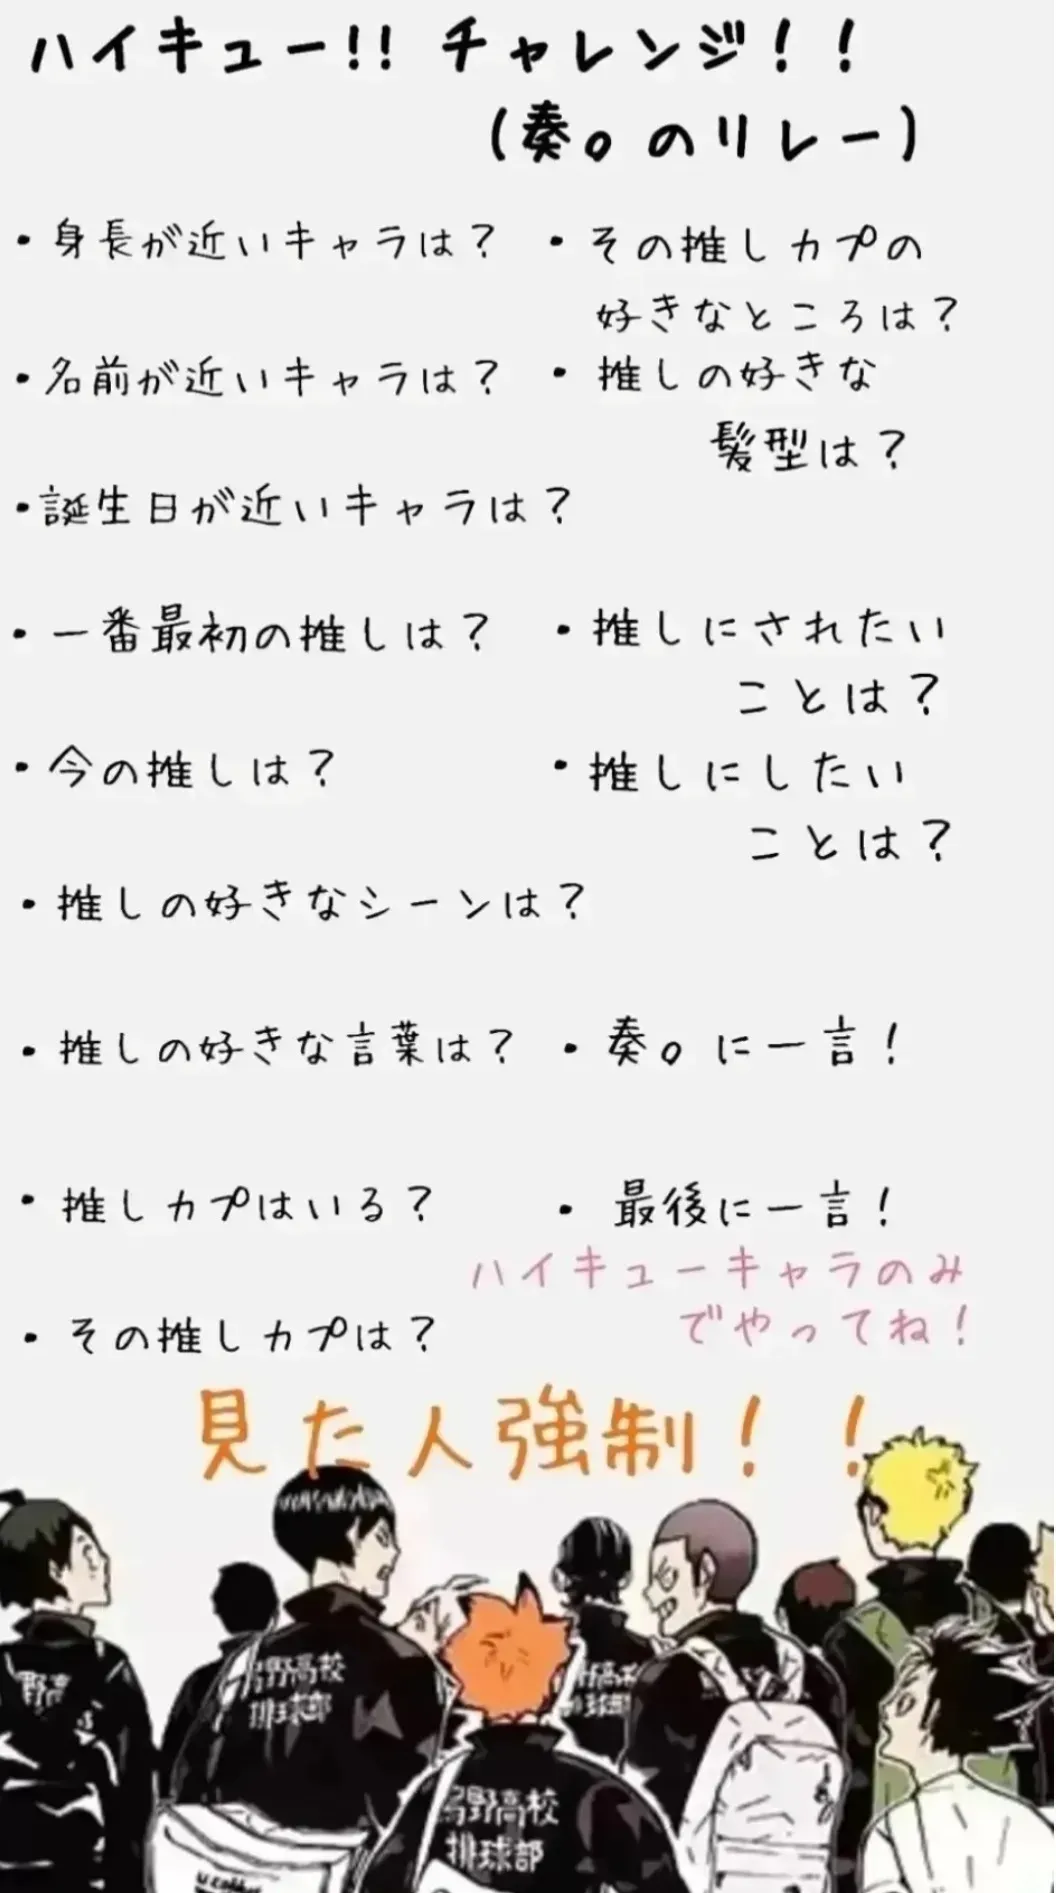 ハイキュー!! チャレンジ！！
(奏。のリレー)
・身長が近いキャラは？
・名前が近いキャラは？
・誕生日が近いキャラは？
・一番最初の推しは？
・今の推しは？
・推しの好きなシーンは？
・推しの好きな言葉は？
・推しカプはいる？
・その推しカプは？
・その推しカプの
好きなところは？
・推しの好きな
髪型は？
・推しにされたい
ことは？
・推しにしたい
ことは？
・奏。に一言！
・最後に一言！
ハイキューキャラのみ
でやってね！
見た人強制！！
野高
野高校
排球部
野高校
排球部
烏野高校
排球部